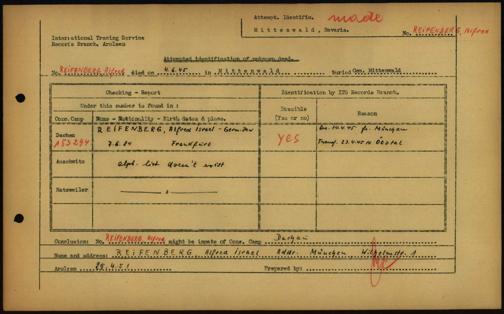 Attempt. Identific. made
Mittenwald, Bavaria.
No. REIFENBERG, Alfred
International Tracing Service
Records Branch, Arolsen
Attempted identification of unknown dead.
No. REIFENBERG Alfred died on 4.6.45 in Mittenwald Buried Cem. Mittenwald
Checking - Report
Identification by ITS Records Branch.
Under this number is found in :
Possible
(Yes or no)
Reason
Conc.Camp
Name - Nationality - Birth dates & place.
Dachau
REIFENBERG, Alfred Israel - Germ. Jew
7.6.04 Frankfurt
yes
Transf. 23.4.45 to Ötztal
Auschwitz
alph. list doesn't exist
Natzweiler
Conclusion: No. REIFENBERG Alfred might be inmate of Conc. Camp Dachau
Name and address: REIFENBERG Alfred Israel Addr. München Wilhelmstr.
Arolsen 28.4.51 Prepared by: